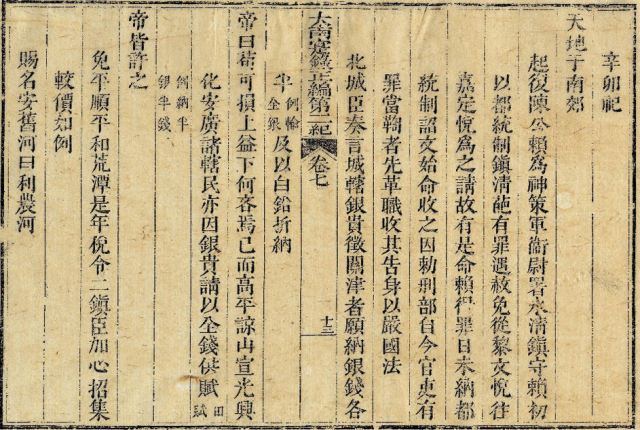 辛卯祀
天地于南郊
起復陳公賴為神策軍衛尉署永清鎮守賴初
以都統制鎮清葩有罪遇赦免從黎文悅往
嘉定悅為之請故有是命賴得罪日未納都
統制詔文始命收之因勅刑部自今官吏有
罪當鞫者先革職收其告身以嚴國法
北城臣奏言城轄銀貴徵關津者願納銀錢各
大南寔錄正編第二紀 卷七 十三
半例輸全銀及以白鉛折納
帝曰苟可損上益下何吝焉已而高平諒山宣光興
化安廣諸轄民亦因銀貴請以全錢供賦田賦
例納半銀半錢
帝皆許之
免平順平和荒潭是年稅令二鎮臣加心招集
較價如例
賜名安舊河曰利農河